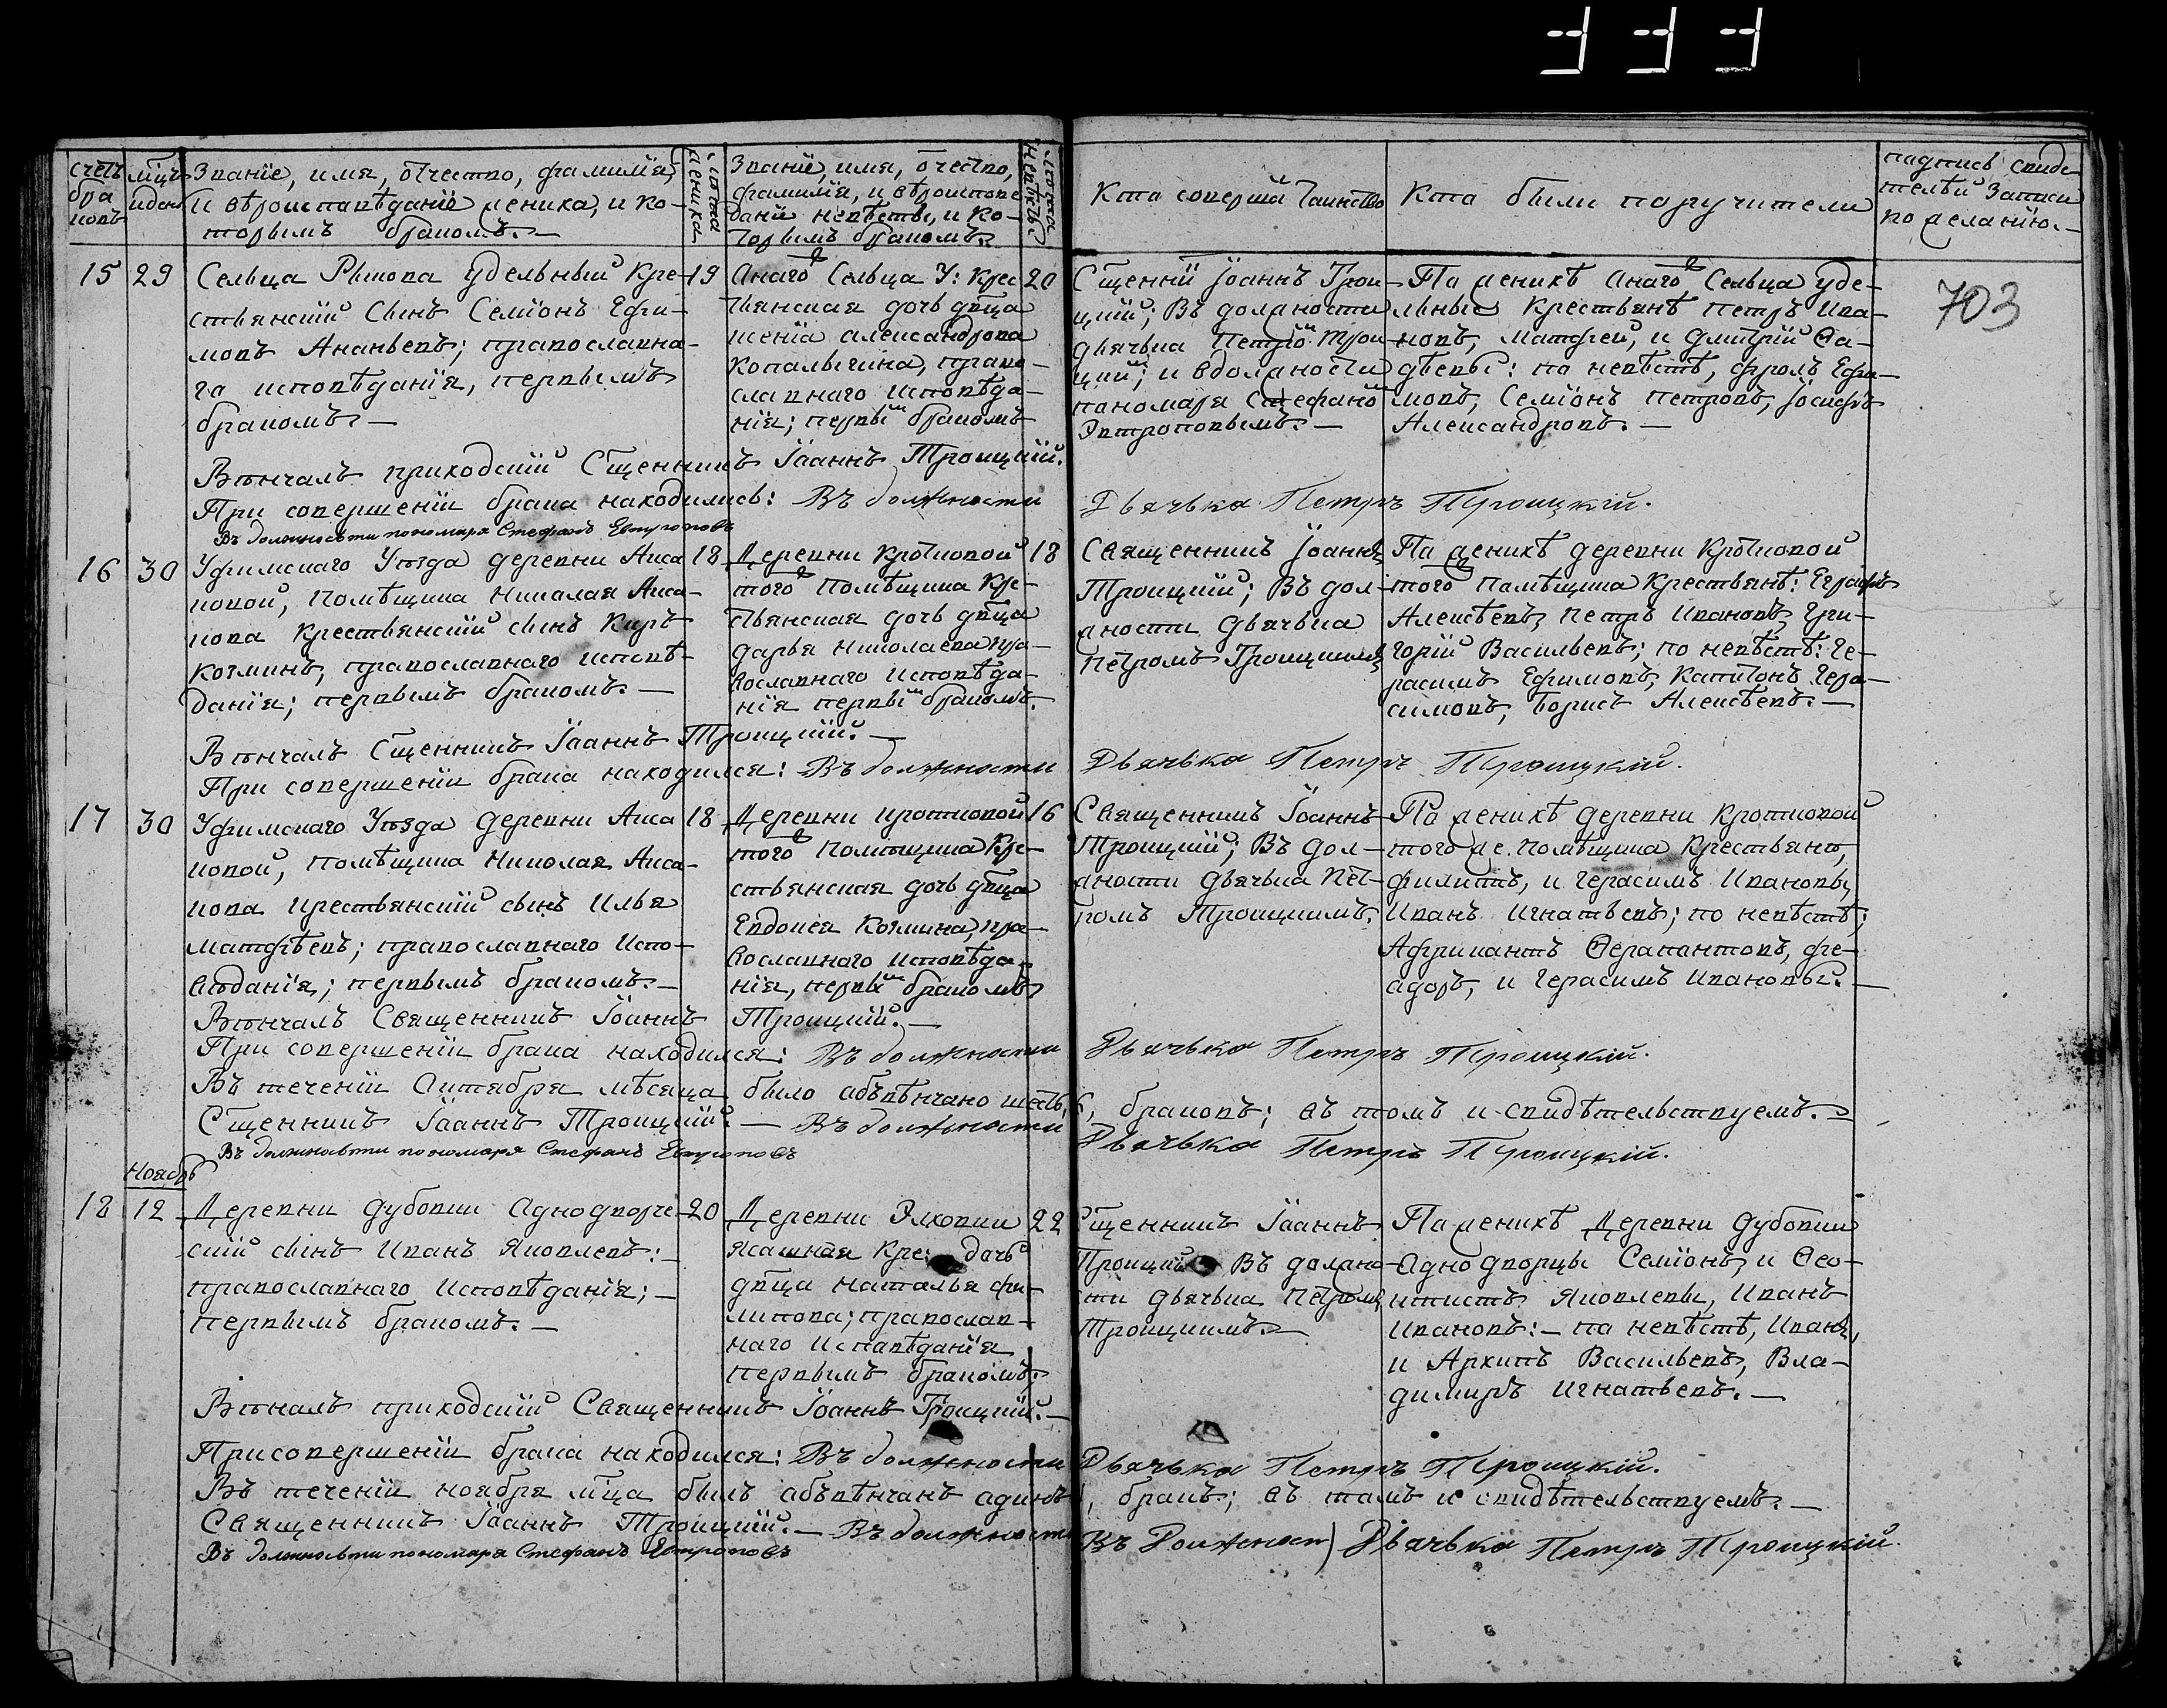 счетъ браковъ
мцъ и день
Званіе, имя, отчество, фамилія,
и вѣроисповѣданіе жениха, и ко-
торымъ бракомъ. —
лѣта жениха
Званіе, имя, отчество,
фамилія, и вѣроиспове
даніе невѣсты, и ко-
торымъ бракомъ.
лѣта невѣсты
Кто соверша таинство
Кто были поручители
подпись свиде
телей записи
по желанію. —
703
15
29
Сельца Рыкова удельный кре-
стьянскій сынъ Семіонъ Ефи-
мовъ Ананьевъ; православна-
го исповѣданія, первымъ
бракомъ. —
19
Онаго Сельца У: Крес
тьянская дочь двца
ксенія александрова
Копалыгина, право-
славнаго исповѣда-
нія; первы бракомъ
20
Сщенни Іоаннъ Трои-
цкій; Въ должности
дьячька Петро Трои
цкій; и вдолжности
пономаря Стефано
Эвтроповымъ. —
По женихѣ Онаго Сельца уде-
льные крестьянѣ Петръ Ива-
новъ, матфей, и дмитрій Ѳа-
дѣевы: по невѣстѣ, фролъ Ефи-
мовъ, Семіонъ петровъ, Іосифъ
Александровъ. —
Вѣнчалъ приходскій Сщенникъ Іоаннъ Троицкій.
При совершеніи брака находились: Въ должности Дьячька Петръ Троицкій.
Въ должности пономаря Стефанъ Евтроповъ
16
30
Уфимскаго Уѣзда деревни Акса
ковой, помѣщика николая Акса-
кова крестьянскій сынъ Киръ
козминъ, православнаго исповѣ-
данія; первымъ бракомъ. —
18
Деревни кротковой
того помѣщика Кре-
стьянская дочь двца
дарья николаева пра-
вославнаго исповѣда-
нія первы бракомъ.
18
Священникъ Іоаннъ
Троицкій; Въ дол-
жности дьячька
петромъ Троицкимъ
По женихѣ деревни Кротковой
того помѣщика крестьянѣ: Еграфъ
Алексѣевъ, петръ ивановъ, гри-
горій Васильевъ; по невѣстѣ: ге-
расимъ Ефимовъ, капитонъ гера-
симовъ, борисъ Алексѣевъ. —
Вѣнчалъ Сщенникъ Іоаннъ Троицкій. —
При совершеніи брака находился: Въ должности Дьячька Петръ Троицкій.
17
30
Уфимскаго Уѣзда деревни Акса
ковой, помѣщика николая Акса-
кова крестьянскій сынъ илья
матфѣевъ; православнаго испо-
вѣданія; первымъ бракомъ. —
18
Деревни кротковой
того помѣщика Кре-
стьянская дочь двца
Евдокея козмина, пра-
вославнаго исповѣда-
нія, первы бракомъ
16
Священникъ Іоаннъ
Троицкій; Въ дол-
жности дьячька пет-
ромъ Троицкимъ.
По женихѣ деревни кротковой
того же помѣщика крестьянѣ,
филипъ, и герасимъ ивановы,
иванъ игнатьевъ; по невѣстѣ;
Ѳерапонтовъ, фе-
адоръ, и герасимъ ивановы. —
Вѣнчалъ Священникъ Іоаннъ Троицкій. —
При совершеніи брака находился: Въ должности Дьячька Петръ Троицкій.
Въ теченіи октября мѣсяца было абъвѣнчано шесть, браковъ; въ томъ и свидѣтельствуемъ. —
Сщенникъ Іоаннъ Троицкій. — Въ должности Дьячька Петръ Троицкій.
Въ должности пономаря Стефанъ Евтроповъ
Ноябрь
18
12
Деревни дубовки Однодворче-
скій сынъ иванъ яковлевъ: —
православнаго исповѣданія; —
первымъ бракомъ. —
20
Деревни Элховки
ясашная кре: дочь
двца наталья фи-
липова; православ-
наго исповѣданія
первымъ бракомъ.
22
Сщенникъ Іоаннъ
Троицкій Въ должно-
сти дьячька петромъ
Троицкимъ. —
По женихѣ деревни дубовки
Однодворцы Семіонъ, и Ѳео-
ктистъ яковлевы, иванъ
ивановъ: — по невѣстѣ, иванъ,
и Архипъ Васильевъ, Вла-
димиръ игнатьевъ. —
Вѣнчалъ приходскій Священникъ Іоаннъ Троицкій. —
При совершеніи брака находился: Въ должности Дьячька Петръ Троицкій.
Въ теченіи ноября мца былъ абъвѣнчанъ адинъ, бракъ; въ томъ и свидѣтельствуемъ. —
Священникъ Іоаннъ Троицкій. — Въ должности Въ Должност) Дьячька Петръ Троицкій.
Въ должности пономаря Стефанъ Евтроповъ